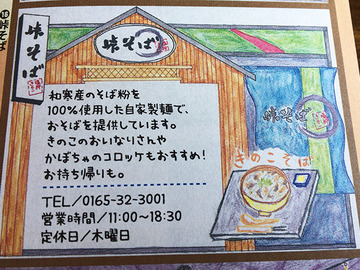 ⑱峠そば
峠そば
峠そば
和寒産のそば粉を
100%使用した自家製麺で、
おそばを提供しています。
きのこのおいなりさんや
かぼちゃのコロッケもおすすめ!
お持ち帰りも。
TEL/0165-32-3001
営業時間/11:00〜18:30
定休日/木曜日
峠そば
きのこそば